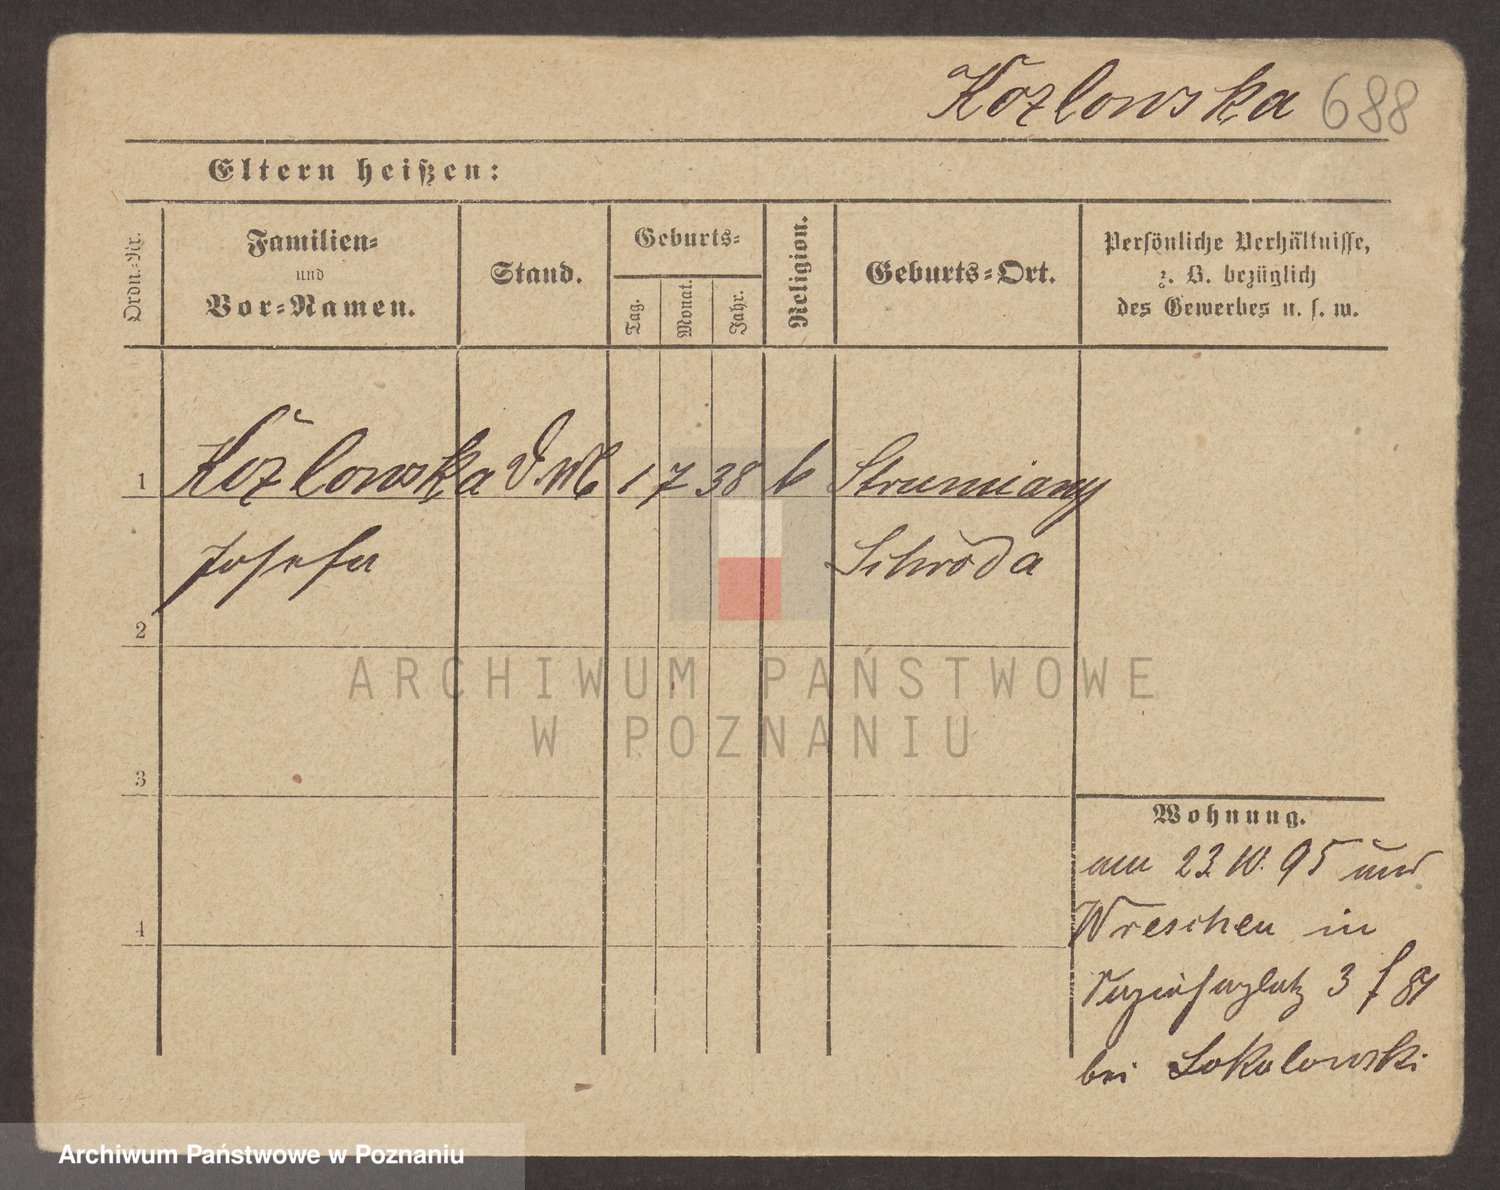 Kozlowska 688
Eltern heißen:
Ordn.-Nr.
Familien-
und
Vor-Namen.
Stand.
Geburts-
Tag.
Monat.
Jahr.
Religion.
Geburts-Ort.
Persönliche Verhältnisse,
z. B. bezüglich
des Gewerbes u. s. w.
1 Kozlowska 1 7 38 k Strumiany
Josefa Schroda
2
3
4
ARCHIWUM PAŃSTWOWE
W POZNANIU
Wohnung.
am 23 10. 95 und
Wreschen in
3
bei Sokolowski.
Archiwum Państwowe w Poznaniu